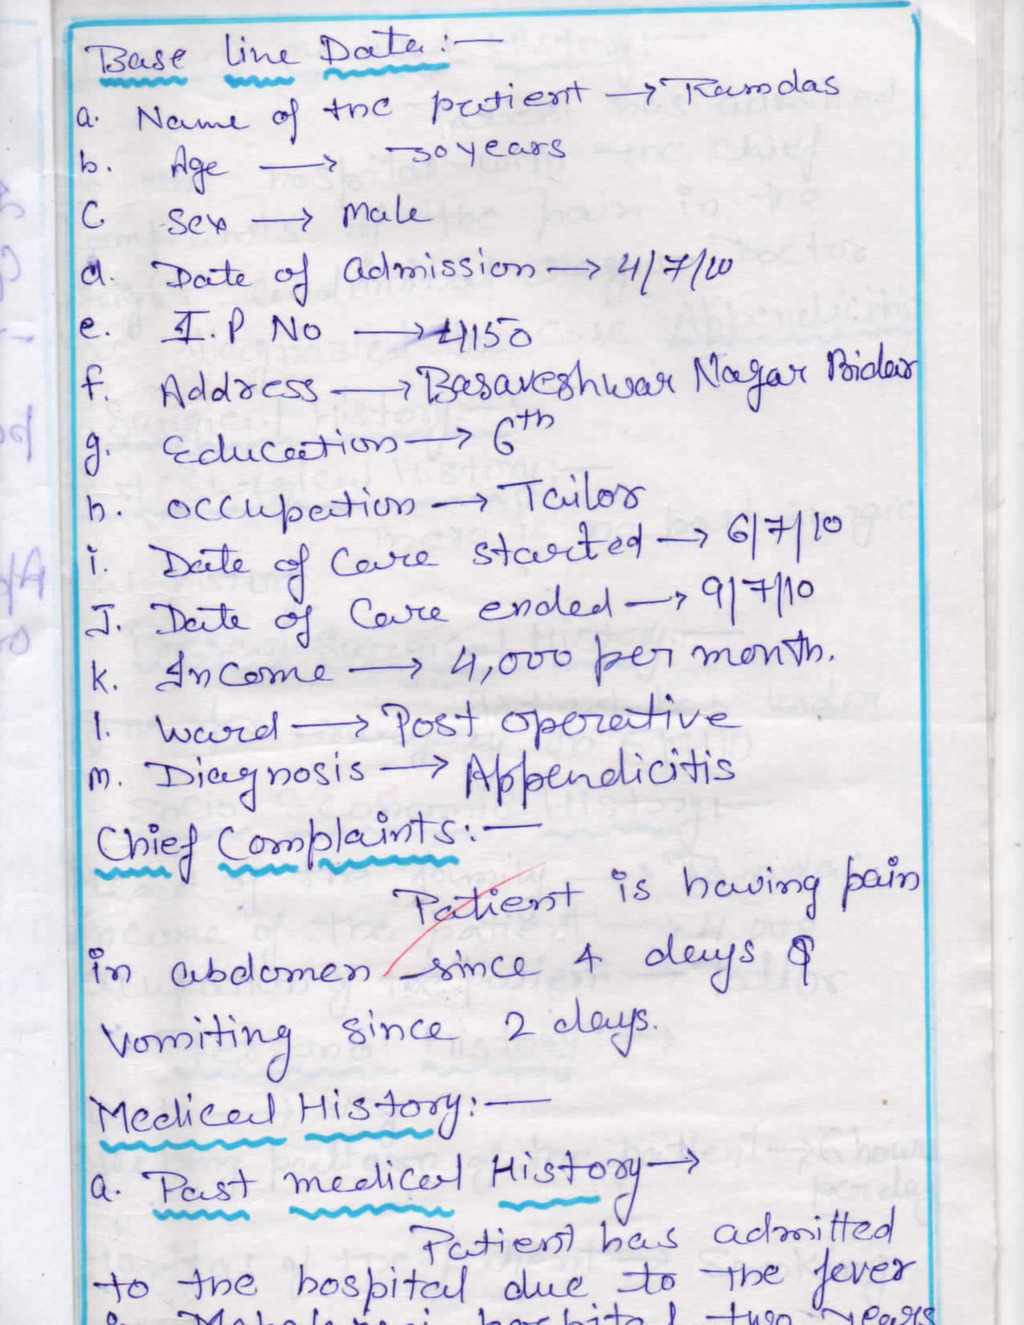 Base line Data:-
a. Name of the patient → Ramdas
b. Age → 30 years
C. Sex → Male
d. Date of admission → 4/7/10
e. I.P No → 4150
f. Address → Basaveshwar Nagar Bidar
g. Education → 6th
h. occupation → Tailor
i. Date of Care started → 6/7/10
J. Date of Care ended → 9/7/10
k. Income → 4,000 per month.
l. Ward → Post operative
m. Diagnosis → Appendicitis
Chief Complaints:-
Patient is having pain
in abdomen since 4 days &
Vomiting since 2 days.
Medical History:-
a. Past medical History →
Patient has admitted
to the hospital due to the fever
hospital two years